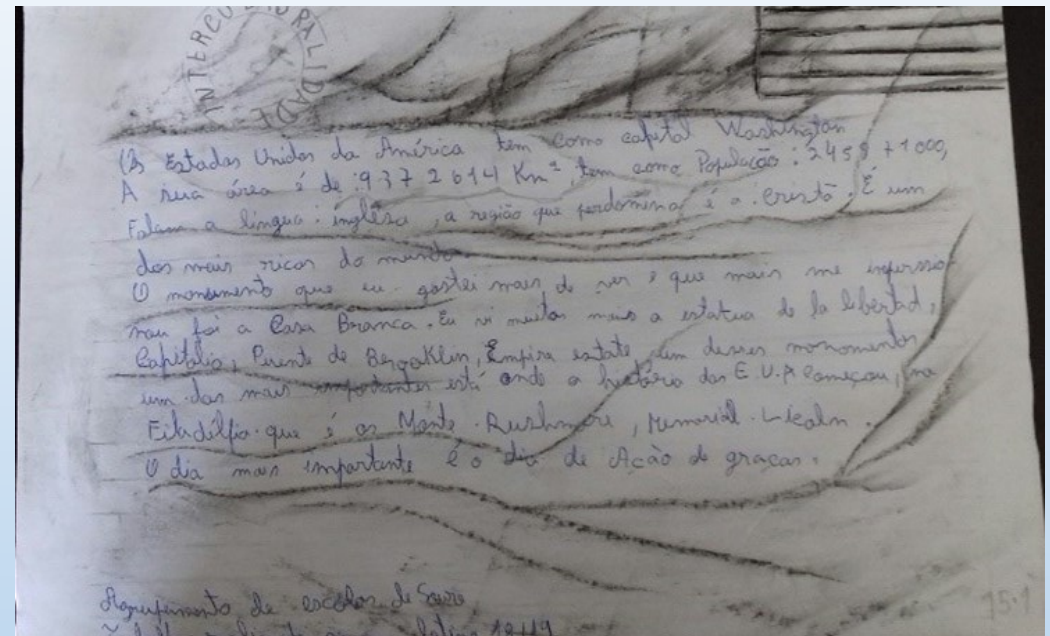 INTERCULTURALIDADE
Os Estados Unidos da América tem como capital Washington
A sua área é de :937 2614 Km², tem como População : 2458 +1000,
Falam a língua : inglêsa , a região que perdomina é o cristõ. É um
dos mais ricos do mundo.
O monumento que eu gostei mais de ver e que mais me imperssio-
nou foi a Casa Branca. Eu vi muitos mais a estatua de la libertad,
Capitólio, Puente de Brooklin, Empira estate, um desses monomentos
um dos mais importantes está onde a história dos E.U.A começou, na
Filadélfia que é os Monte Rushmore, Memorial
O dia mais importante é o dia de Ação de graças.
Agrupamento de escolas de Soure
15.1